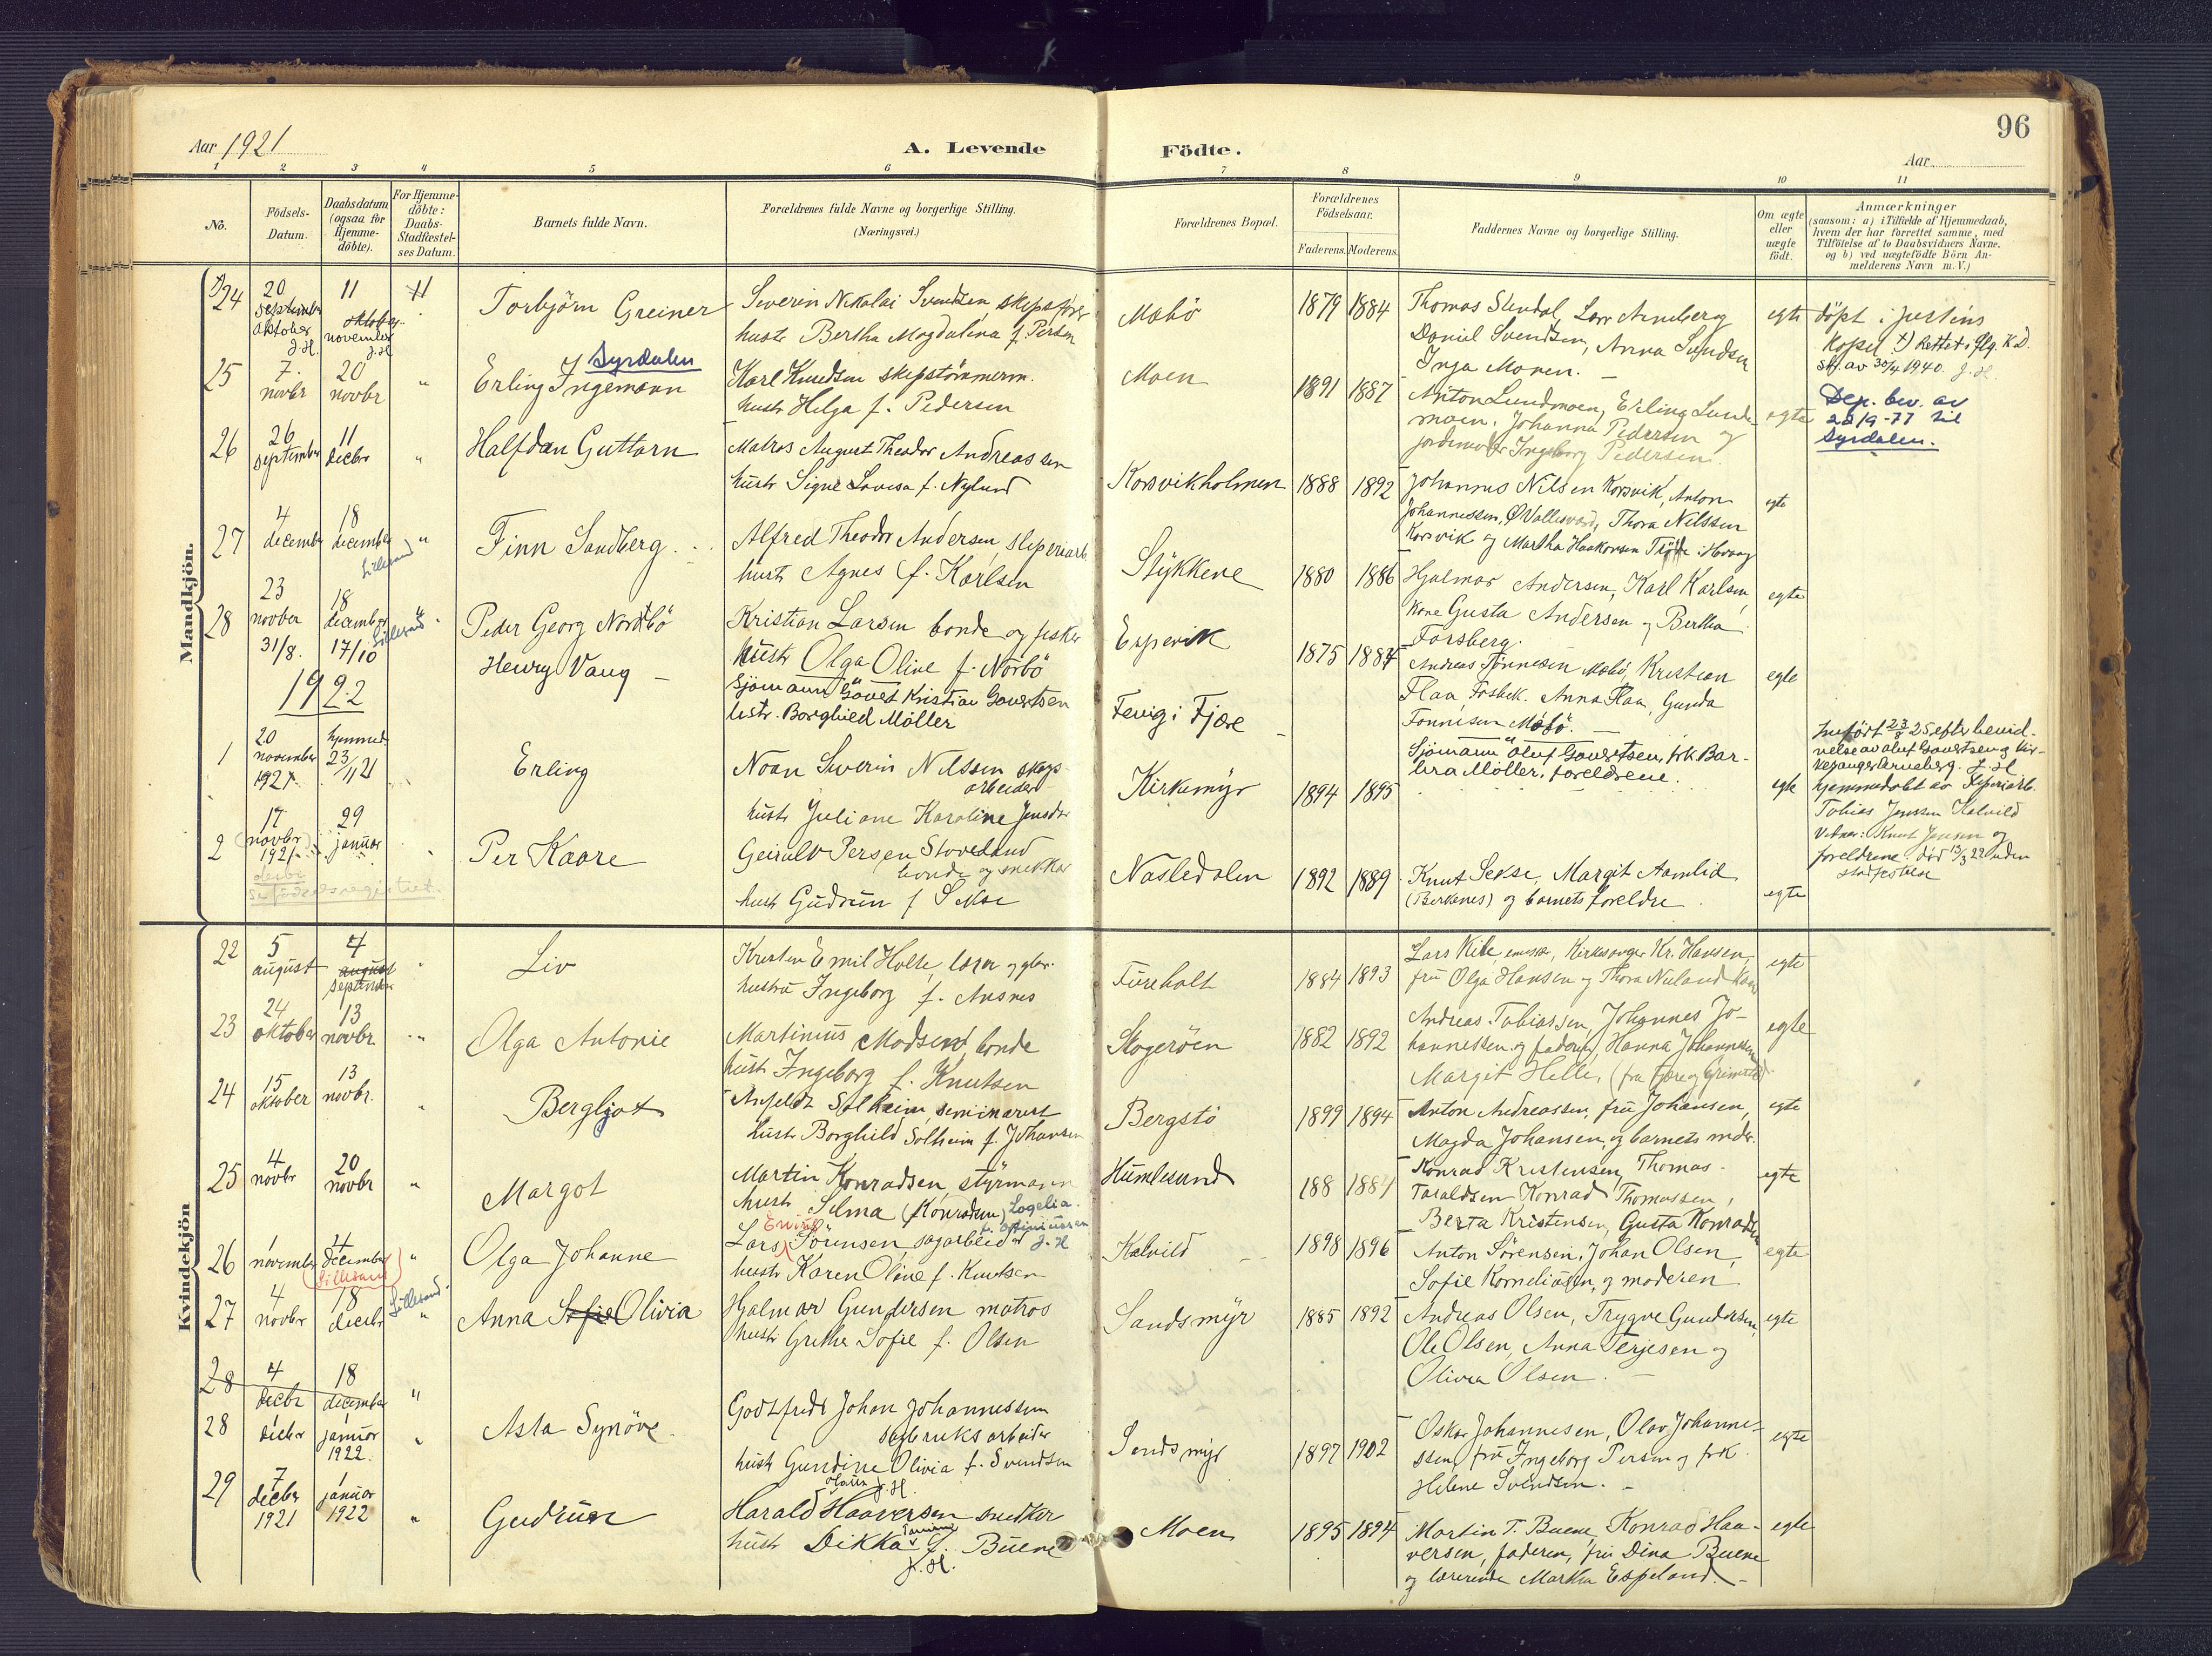 96
Aar 1921
A. Levende Födte.
Aar
1 2 3 4 5 6 7 8 9 10 11
No.
Födsels-Datum.
Daabsdatum (ogsaa for Hjemme-döbte).
For Hjemme-döbte: Daabs-Stadfæstel-ses Datum.
Barnets fulde Navn.
Forældrenes fulde Navne og borgerlige Stilling.
(Næringsvei.)
Forældrenes Bopæl.
Forældrenes Födselsaar.
Faderens. Moderens.
Faddernes Navne og borgerlige Stilling.
Om ægte eller uægte födt.
Anmærkninger
(saasom: a) i Tilfælde af Hjemmedaab, hvem der har forrettet samme, med Tilföielse af to Daabsvidners Navne, og b) ved uægtefödte Börn An-melderens Navn m. V.)
Mandkjön.
24 20 september oktober J.H. 11 oktober november J.H. 11
Torbjörn Greiner
Severin Nikolai Svendsen, skipsfører
hustr Bertha Magdalina f. Persen
Mæbö 1879 1884
Thomas Stendal, Lars Arneberg
Daniel Svendsen, Anna Svendsen
Inga Monen. –
egte
döpt i justins
kapel Rettet i flg. K.D.
skr. av 30/4 1940. J.H.
25 7. novbr 20 novbr "
Syrdalen
Erling Ingemann
Karl Knudsen skipstömmerm.
hustr Helga f. Pedersen
Moen 1891 1887
Anton Lundmoen, Erling Lund-
moen, Johanna Pedersen og
jordmoder Ingeborg Pedersen.
egte
Dep. bev. av
22/9-77 til
Syrdalen.
26 26 september 11 decbr "
Halfdan Guttorn
Matros August Theodor Andreassen
hustr Signe Lovisa f. Nylund
Korsvikholmen 1888 1892
Johannes Nilsen Korsvik, Anton
Johannessen, Ø Vallesværd, Thora Nilssen
Korsvik og Martha Haakonsen
egte
27 4 december 18 december Lillesand "
Finn Sandberg
Alfred Theodor Andersen, sliperiarb.
hustr Agnes f. Karlsen
Stykkene 1880 1886
Hjalmar Andersen, Karl Karlsen,
kone Gusta Andersen og Bertha
Forsberg.
egte
28 23 novber 18 december Lillesand "
Peder Georg Nordbö
Kristian Larsen bonde og fisker
hustr Olga Oline f. Norbö
Espevik 1875 1884
Andreas Tönnesen Mæbö, Kristian
Flaa, Fosbek. Anna Flaa, Gunda
Tönnesen Mæbö.
egte
31/8. 17/10
Henry Vaug –
Sjömann Govert Kristian Govertsen
hstr. Borghild Möller
Fevig i Fjære –
Sjömann Oluf Govertsen, frk Bar-
bra Möller, foreldrene.
Innfört 23/8 25 efter bevid-
nelse av oluf Govertsen og kir-
kesanger Arneberg. J. H
1922
1 20 november 1921. hjemmed. 23/11 21
Erling
Noan Severin Nilssen skogs-
arbeider
hustr Juliane Karoline Jensdtr
Kirkemyr 1894 1895
egte
hjemmedöbt av Sliperiarb.
Tobias Jenssen Kalvild
Vitner: Knut Jensen og
foreldrene. död 13/3 22 uden
stadfestelse
2 17 novbr 1921 29 januar
decbr
Se födselsregistret.
Per Kaare
Geirulv Persen Stoveland
bonde og snekker
hustr Gudrun f Sekse
Nasledalen 1892 1889
Knut Sekse, Margit Aamlid
(Birkenes) og barnets foreldre
egte
Kvindekjön
22 5 august 4 august september
Liv
Kristen Emil Holte, lærer og gbr.
hustru Ingeborg f. Ansnes
Fureholt 1884 1893
Lars Kile, emissær, Kirkesanger Kr. Hansen,
fru Olga Hansen og Thora Nuland
egte
23 24 oktober 13 novbr. "
Olga Antonie
Martinius Madsen, bonde
hustr Ingeborg f. Knutsen
Skogeröen 1882 1892
Andreas Tobiassen, Johannes Jo-
hannessen og faderen, Hanna Johannessen
Margit Helle, (fra Fjære og Grimstad).
egte
24 15 oktober 13 novbr. "
Bergljot
Anfeldt Solheim seminarist
hustr Borghild Solheim f. Johansen
Bergstö 1899 1894
Anton Andreassen, fru Johansen,
Magda Johansen, og barnets moder.
egte
25 4 novbr 20 novbr "
Margot
Martin Konradsen, styrmann
hustr Selma (Konradsen) Logelia.
J. H
Humlesund 188 1887
Konrad Kristensen, Thomas
Taraldsen Konrad Thomassen,
Berta Kristensen, Gusta Konradsen
egte
26 1 november 4 december (Lillesand) "
Olga Johanne
Lars Sörensen, sagarbeider
hustr Karen Oline f. Knutsen
Kalvild 1898 1896
Anton Sörensen, Johan Olsen,
Sofie Korneliusen, og moderen
egte
27 4 novbr 18 decbr Lillesand. "
Anna Sofie Olivia
Hjalmar Gundersen matros
hustr Grethe Sofie f. Olsen
Sandsmyr 1885 1892
Andreas Olsen, Trygve Gundersen,
Ole Olsen, Anna Terjesen og
Olivia Olsen. –
egte
28 4 decbr 18 december "
28 1 decbr 1 januar 1922. "
Asta Synöve
Godtfredt Johan Johannessen
sagbruksarbeider
hustr Gundine Olivia f. Svendsen
Sandsmyr 1897 1902
Oskar Johannesen, Olav Johanne-
ssen, fru Ingeborg Persen og frk.
Helene Svendsen. –
egte
29 7 decbr 1921 1 januar 1922 "
Gudrun
J.H.
Harald Haaversen snekker
hustr Dikka f. Buene
J. H.
Moen 1895 1894
Martin T. Buene, Konrad Haa-
versen, faderen, fru Dina Buene
og lærerinde Martha Espeland. –
egte